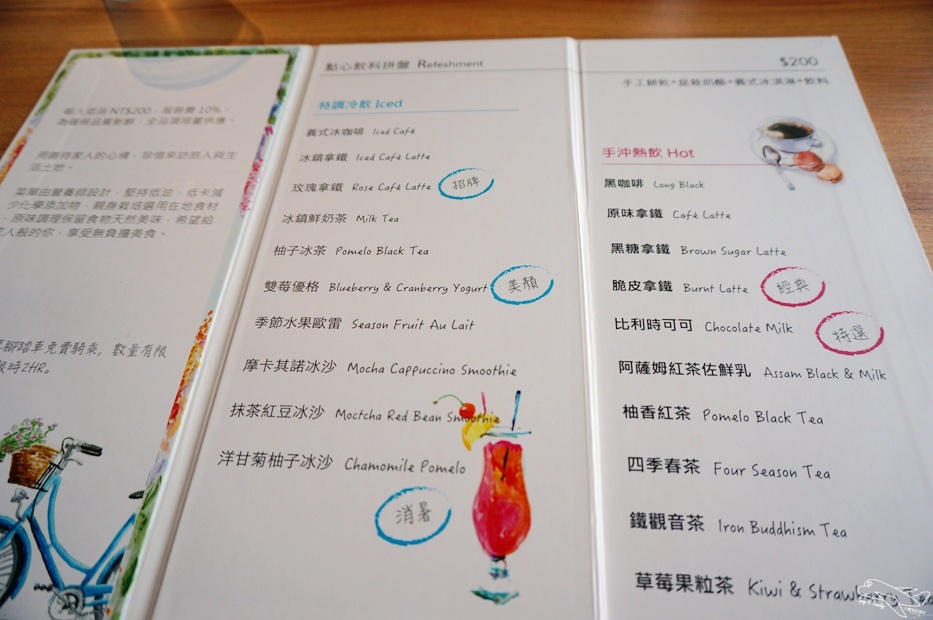 低消 NT$200，服務費 10%。
為確保品質新鮮，全品項限量供應。
用善待家人的心情，珍惜來訪旅人與生
活土地。
菜單由營養師設計，堅持低油、低卡減
少化學添加物，親身栽培選用在地食材
，原味調理保留食物天然美味，希望給
家人般的你，享受無負擔美食。
腳踏車免費騎乘, 數量有限
限時2HR。
點心飲料拼盤 Refeshment
特調冷飲 Iced
義式冰咖啡 Iced Café
冰鎮拿鐵 Iced Café Latte
玫瑰拿鐵 Rose Café Latte 招牌
冰鎮鮮奶茶 Milk Tea
柚子冰茶 Pomelo Black Tea
雙莓優格 Blueberry & Cranberry Yogurt 美顏
季節水果歐雷 Season Fruit Au Lait
摩卡其諾冰沙 Mocha Cappuccino Smoothie
抹茶紅豆冰沙 Moctcha Red Bean Smoothie
洋甘菊柚子冰沙 Chamomile Pomelo
消暑
$200
手工餅乾+盆栽奶酪+義式冰淇淋+飲料
手沖熱飲 Hot
黑咖啡 Long Black
原味拿鐵 Café Latte
黑糖拿鐵 Brown Sugar Latte
脆皮拿鐵 Burnt Latte 經典
比利時可可 Chocolate Milk 特選
阿薩姆紅茶佐鮮乳 Assam Black & Milk
柚香紅茶 Pomelo Black Tea
四季春茶 Four Season Tea
鐵觀音茶 Iron Buddhism Tea
草莓果粒茶 Kiwi & Strawberry Tea